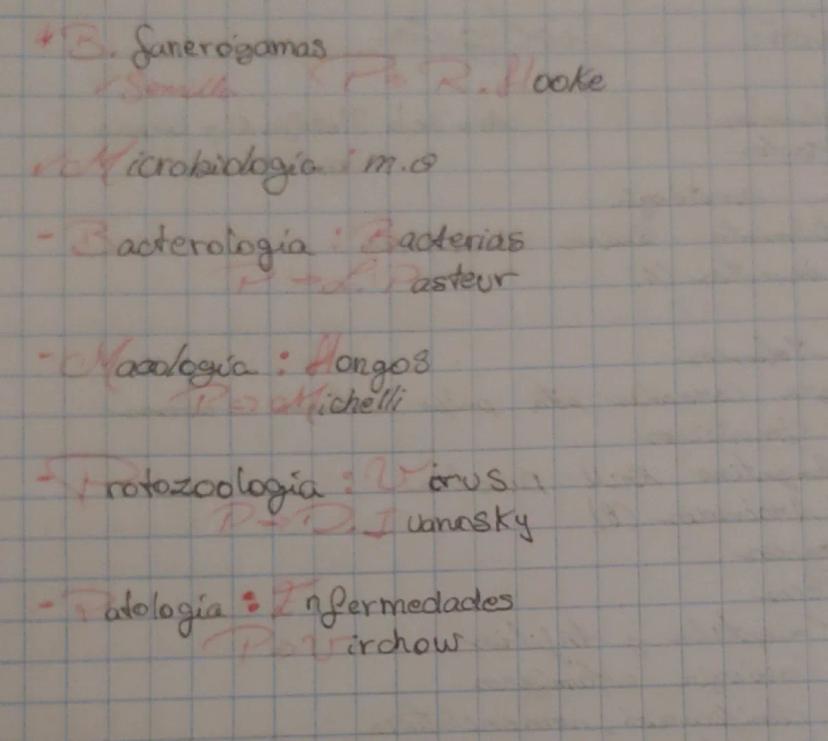 * B. fanerógamas
Semilla P → R. Hooke
Microbiologia : m.o
- Bacterologia : Bacterias
P → L. Pasteur
- Macologia : Hongos
P → Michelli
- Protozoologia : Virus
P → D. Ivanosky
- Patologia : Infermedades
P → Virchow